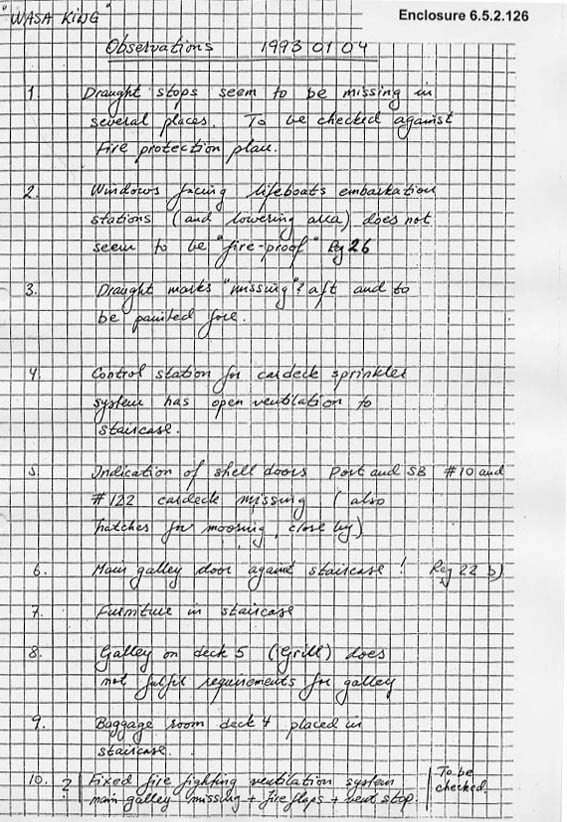 "WASA KING"
Enclosure 6.5.2.126
Observations 1993 01 04
1. Draught stops seem to be missing in
several places. To be checked against
fire protection plan.
2. Windows facing lifeboats embarkation
stations (and lowering area) does not
seem to be "fire-proof" Reg 26
3. Draught marks "missing"? aft and to
be painted fore.
4. Control station for cardeck sprinkler
system has open ventilation to
staircase.
5. Indication of shell doors Port and SB #10 and
#122 cardeck missing (also
hatches for mooring, close by)
6. Main galley door against staircase! Reg 22 b)
7. Furniture in staircase
8. Galley on deck 5 (Grill) does
not fulfil requirements for galley
9. Baggage room deck 4 placed in
staircase.
10. ? Fixed fire fighting ventilation system To be
main galley missing + fire flaps + vent stop. checked.